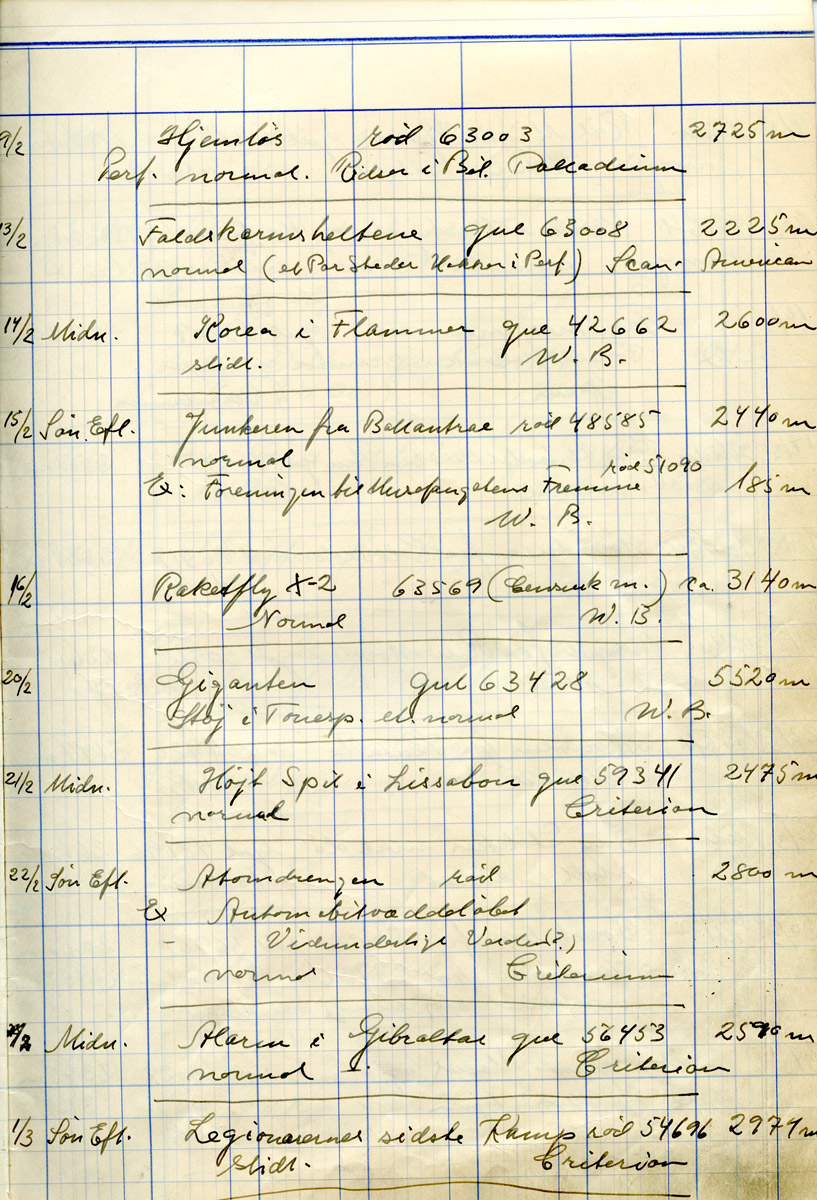 9/2 Hjemløs rød 63003 2725 m
Perf. normal. Ridser i Bil. Palladium
13/2 Faldskærmsheltene gul 63008 2225 m
normal (et Par Steder Hakker i Perf.) Scan. American
14/2 Midn. Korea i Flammer gul 42662 2600 m
slidt. W. B.
15/2 Søn. Eft. Junkeren fra Ballantrae rød 48585 2440 m
normal
rød 51090
Ex: Foreningen til Fremme 185 m
W. B.
16/2 Raketfly X-2 63569 (Censurk m.) ca. 3140 m
Normal W. B.
20/2 Giganten gul 63428 5520 m
Støj i Tonesp. el. normal W. B.
21/2 Midn. Højt Spil i Lissabon gul 59341 2475 m
normal Criterion
22/2 Søn Eft. Atomdrengen rød 2800 m
Ex Automobilvæddeløbet
- Vidunderlige Verden (?)
normal Criterium
Midn. Alarm i Gibraltar gul 56453 m
normal -. Criterion
1/3 Søn Eft. Legionærernes sidste Kamp rød 54696 2974 m
slidt. Criterion